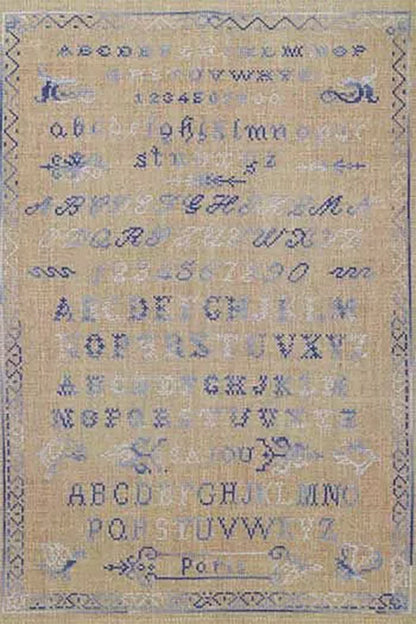 ABCDEFGHIJKLMNOP
QRSTUVWXYZ
1234567890
abcdefghijklmnopqr
stuvwxyz
ABCDEFGHIJKLM
NOPQRSTUVWXYZ
1234567890
ABCDEFGHIJKLM
NOPQRSTUVXYZ
ABCDEFGHJKLM
NOPQRSTUVXYZ
SAJOU
ABCDEFGHJKLMNO
PQRSTUVWXYZ
Paris